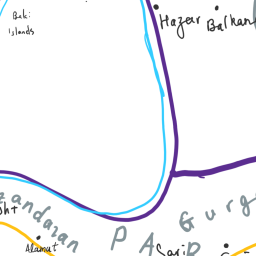 Baki
Islands
Hazar
Balkan
Gurg
zandaran
ght
Alamut
PAR
Sari